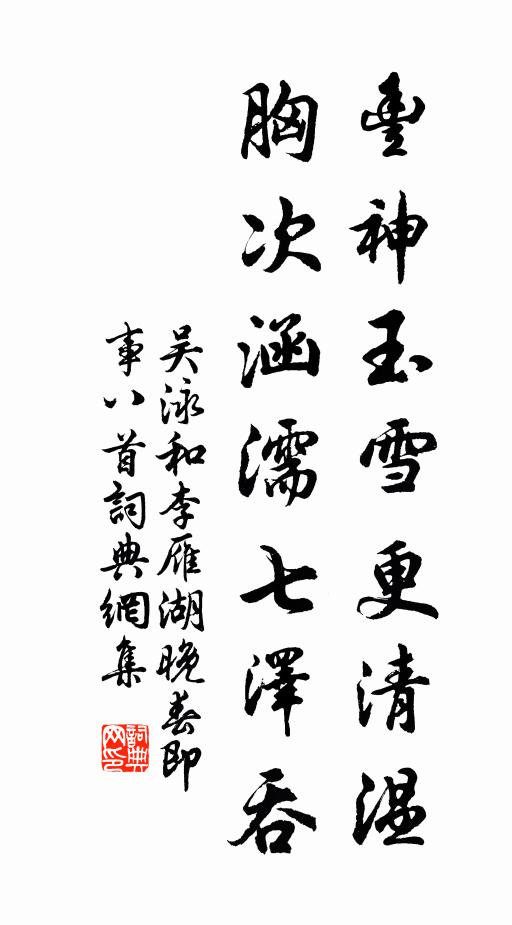 豐神玉雪更清温
胸次涵濡七澤吞
吴泳和李雁湖晚春即
事八首詞典網集
詞典
网印